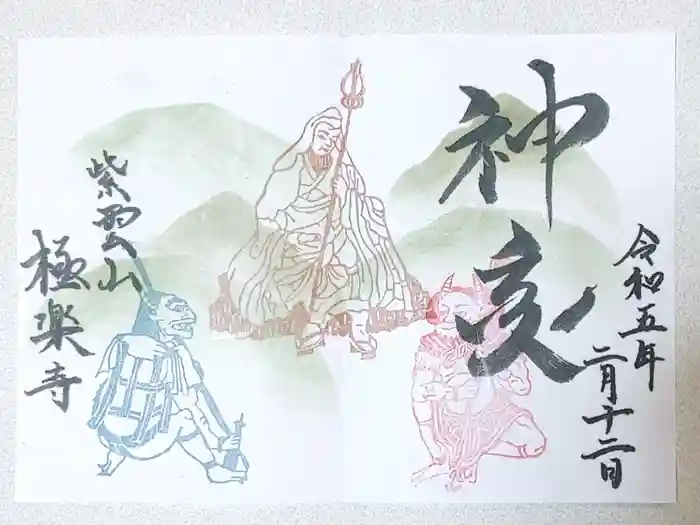 神変
令和五年
二月十二日
紫雲山
極楽寺